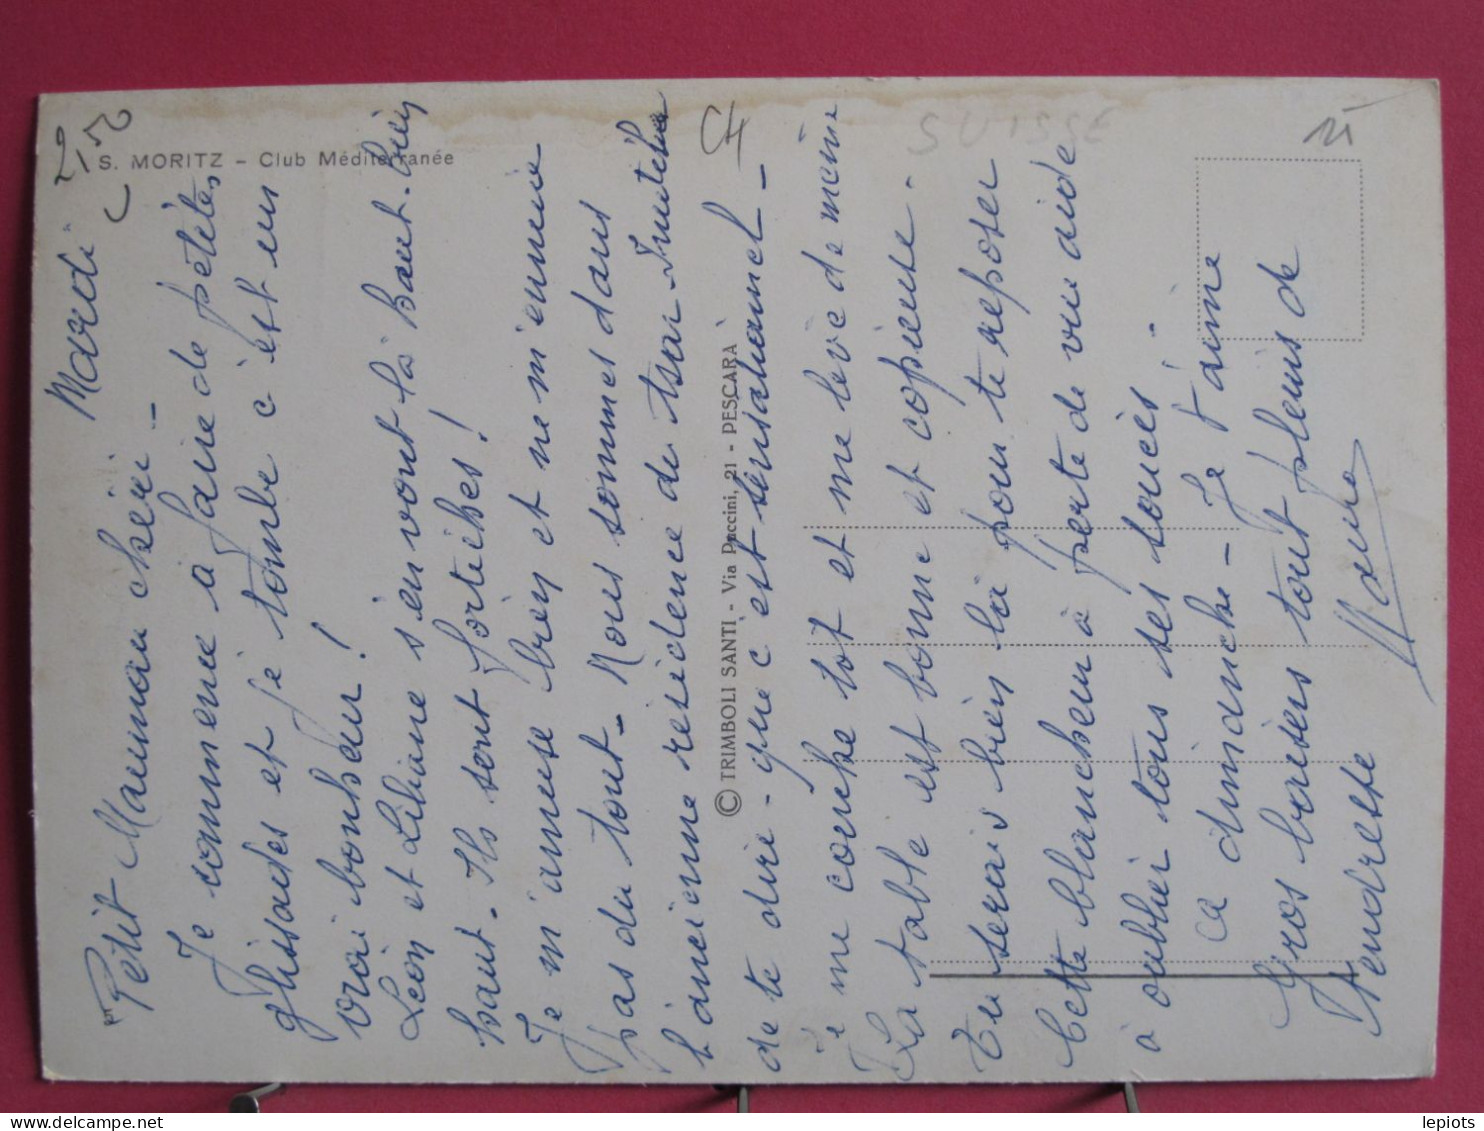 2,50
S. MORITZ - Club Méditerranée
CH
SUISSE
Mardi
Petit Maman chéri -
Je commence à faire de petites
glissades et je tombe c'est un
vrai bonheur !
Léon et Liliane s'en vont là haut. bien
haut. Ils sont fortiches !
Je m'amuse bien et ne m'ennuie
pas du tout - Nous sommes dans
l'ancienne résidence de tsar Inutile
de te dire - que c'est sensationnel -
Je me couche tot et me lève de même
La table est bonne et copieuse.
Tu serais bien là pour te reposer
Cette blancheur à perte de vue aide
à oublier tous ses soucis -
ca dimanche - Je t'aime
Gros baisers tout pleins de
tendresse
© TRIMBOLI SANTI - Via Puccini, 21 - PESCARA
lepiots